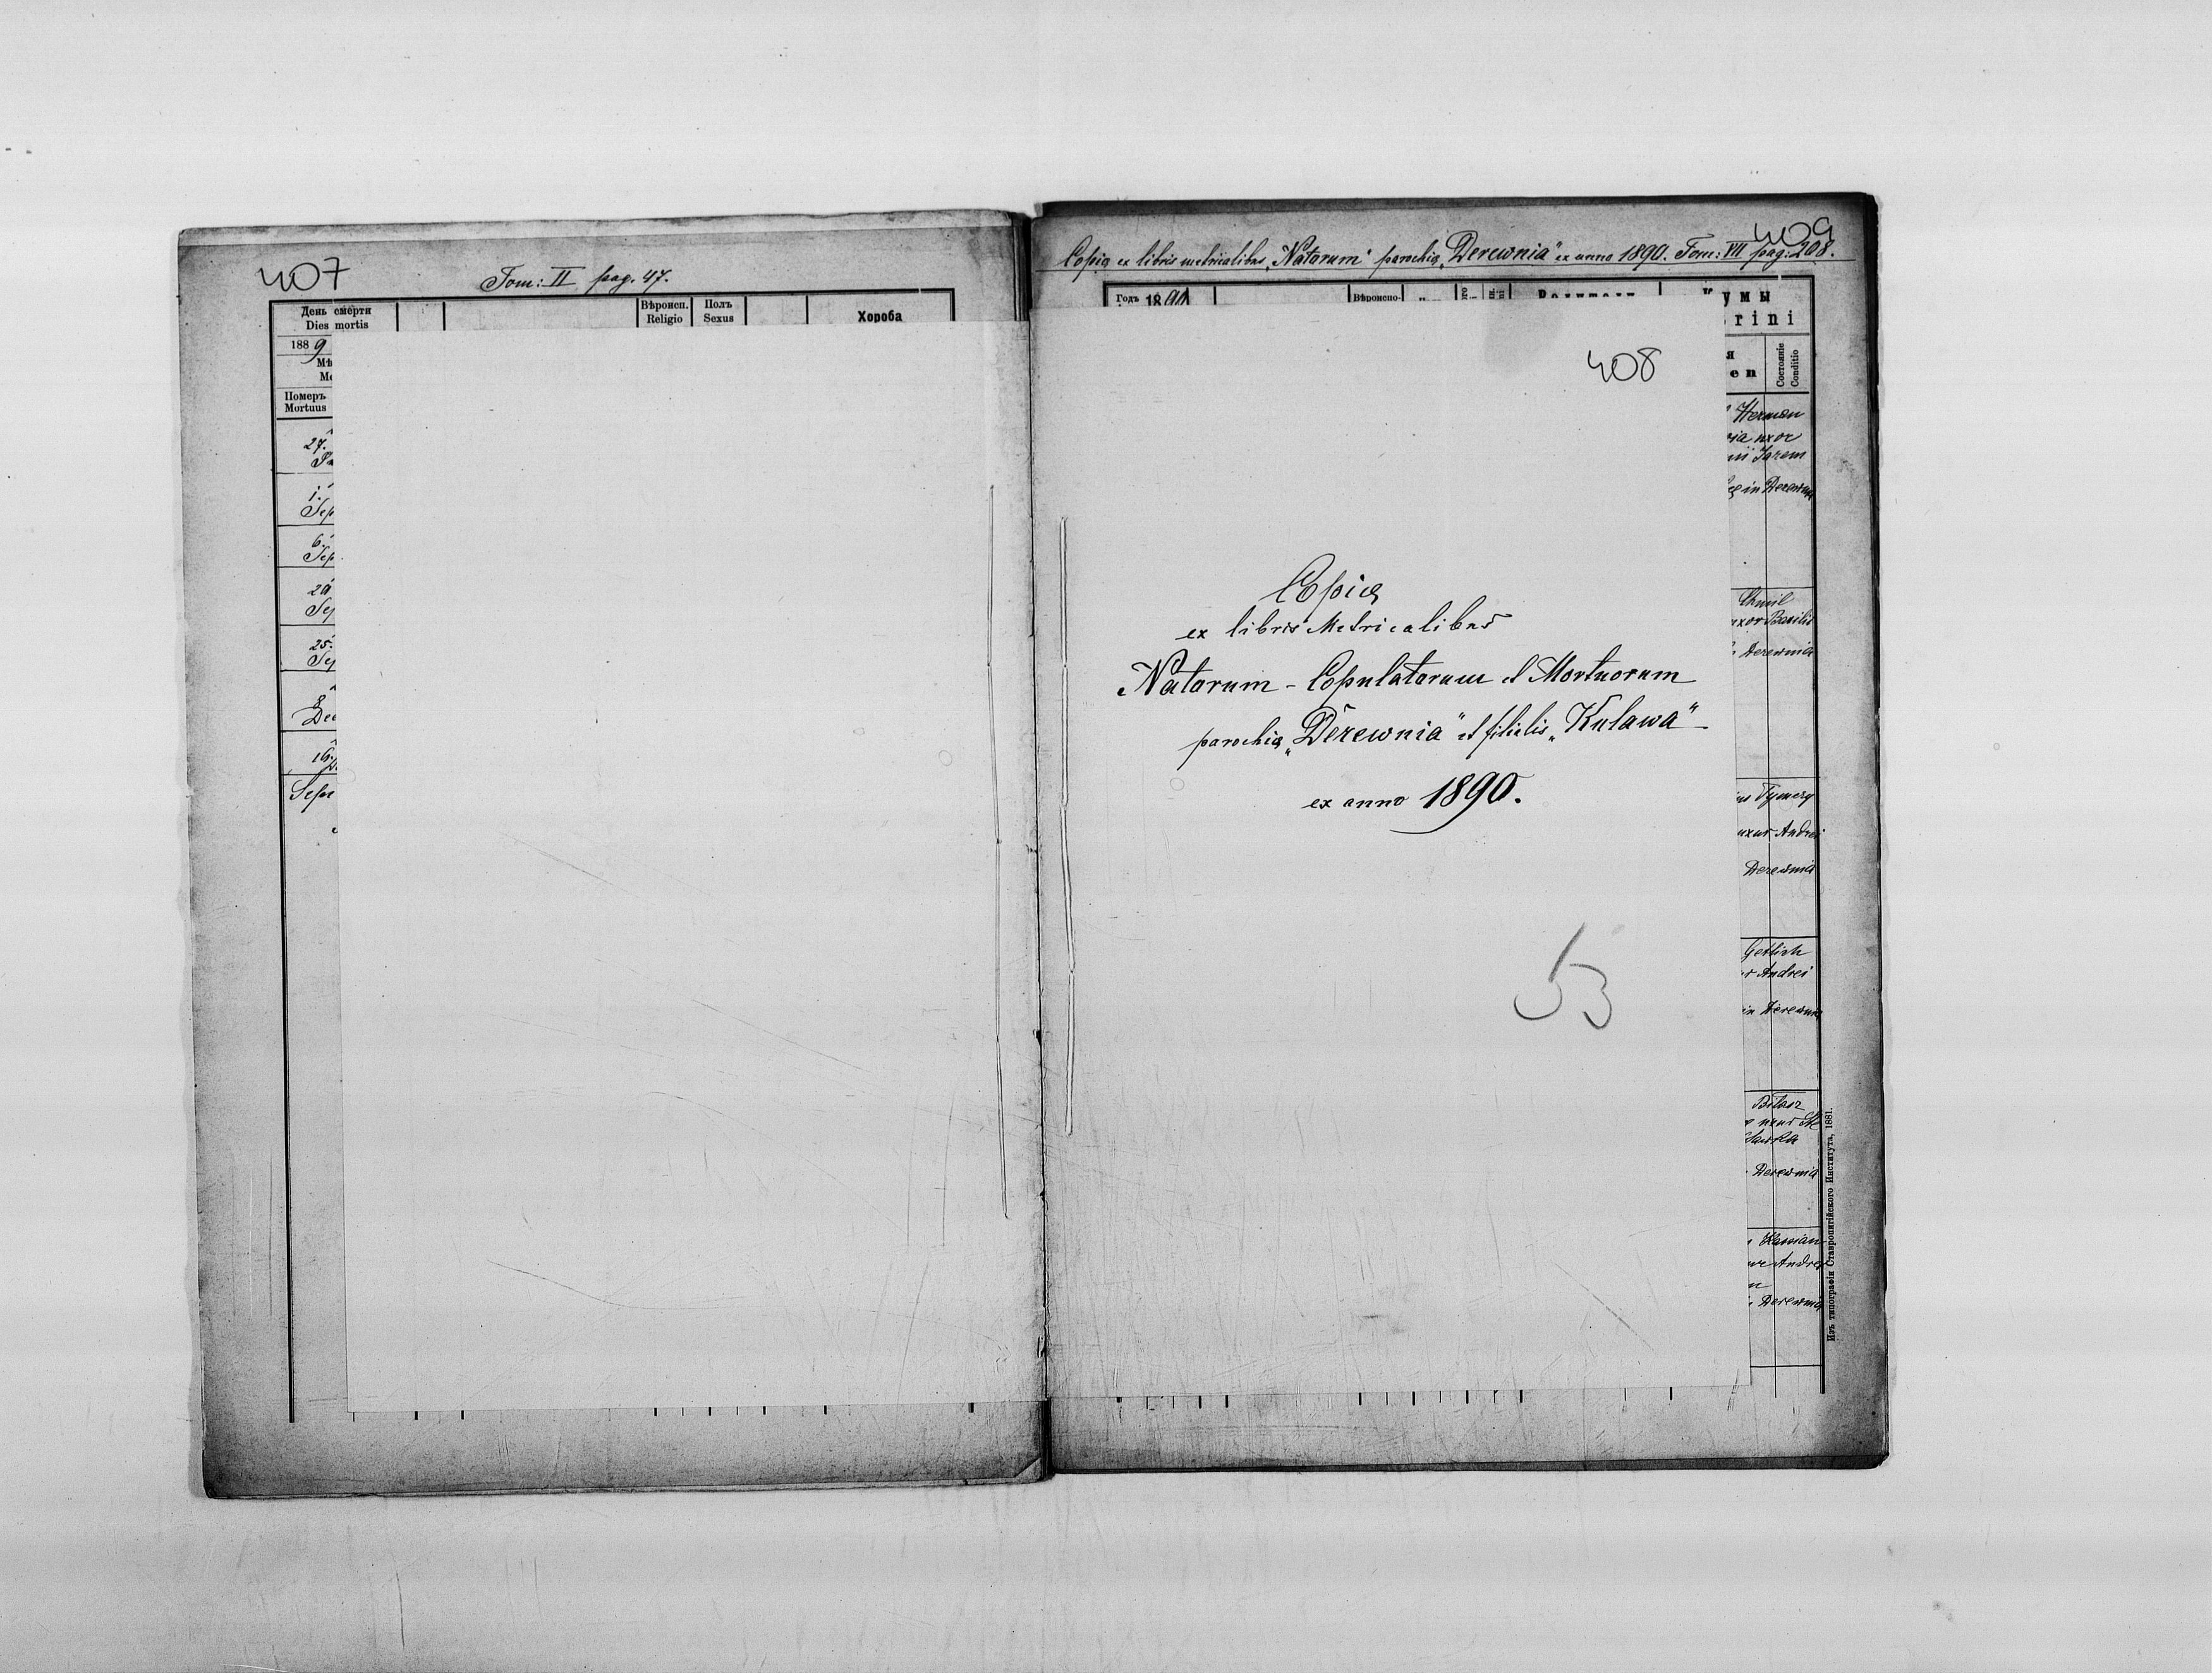 407
Tom: II pag. 47.
День смерти
Dies mortis
Вѣроисп.
Religio
Полъ
Sexus
Хороба
188 9
Померъ
Mortuus
27.
1.
Sep
6.
Sep
25.
Dec
16.
409
Copia ex libris metricalibus „Natorum" parochia „Derewnia" ex anno 1890. Tom: VII pag: 208.
Годъ 1890
Вѣроиспо-
Кумы
rini
я
en
Состояніе
Conditio
408
Herman
uxor
Jarem
in Derewnia
Copia
ex libris Metricalibus
Natorum - Copulatorum et Mortuorum
parochia „Derewnia" et filialis „Kulawa"
ex anno 1890.
53
Chmil
uxor Basilii
Derewnia
Tymczy
uxor Andrei
Derewnia
Andrei
in Derewnia
uxor
Derewnia
Andrei
Derewnia
Изъ типографіи Ставропигійского Института, 1881.